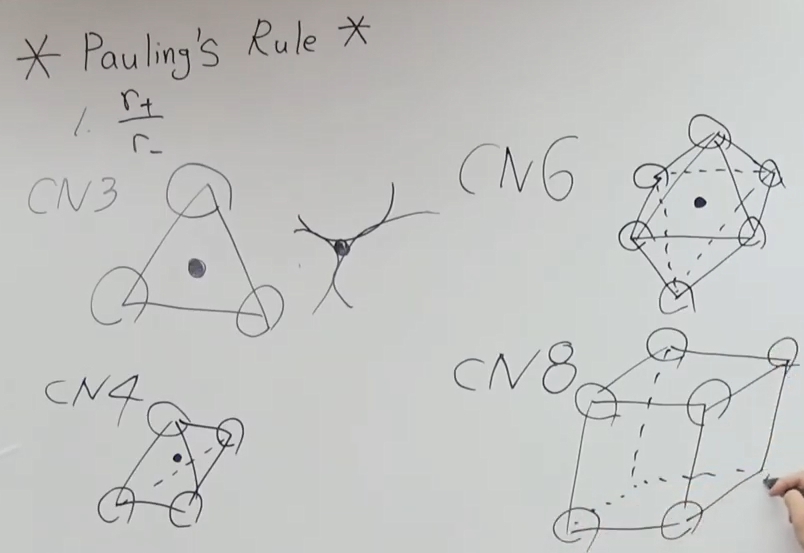 * Pauling's Rule *
1. r+/r-
CN3
CN4
CN6
CN8